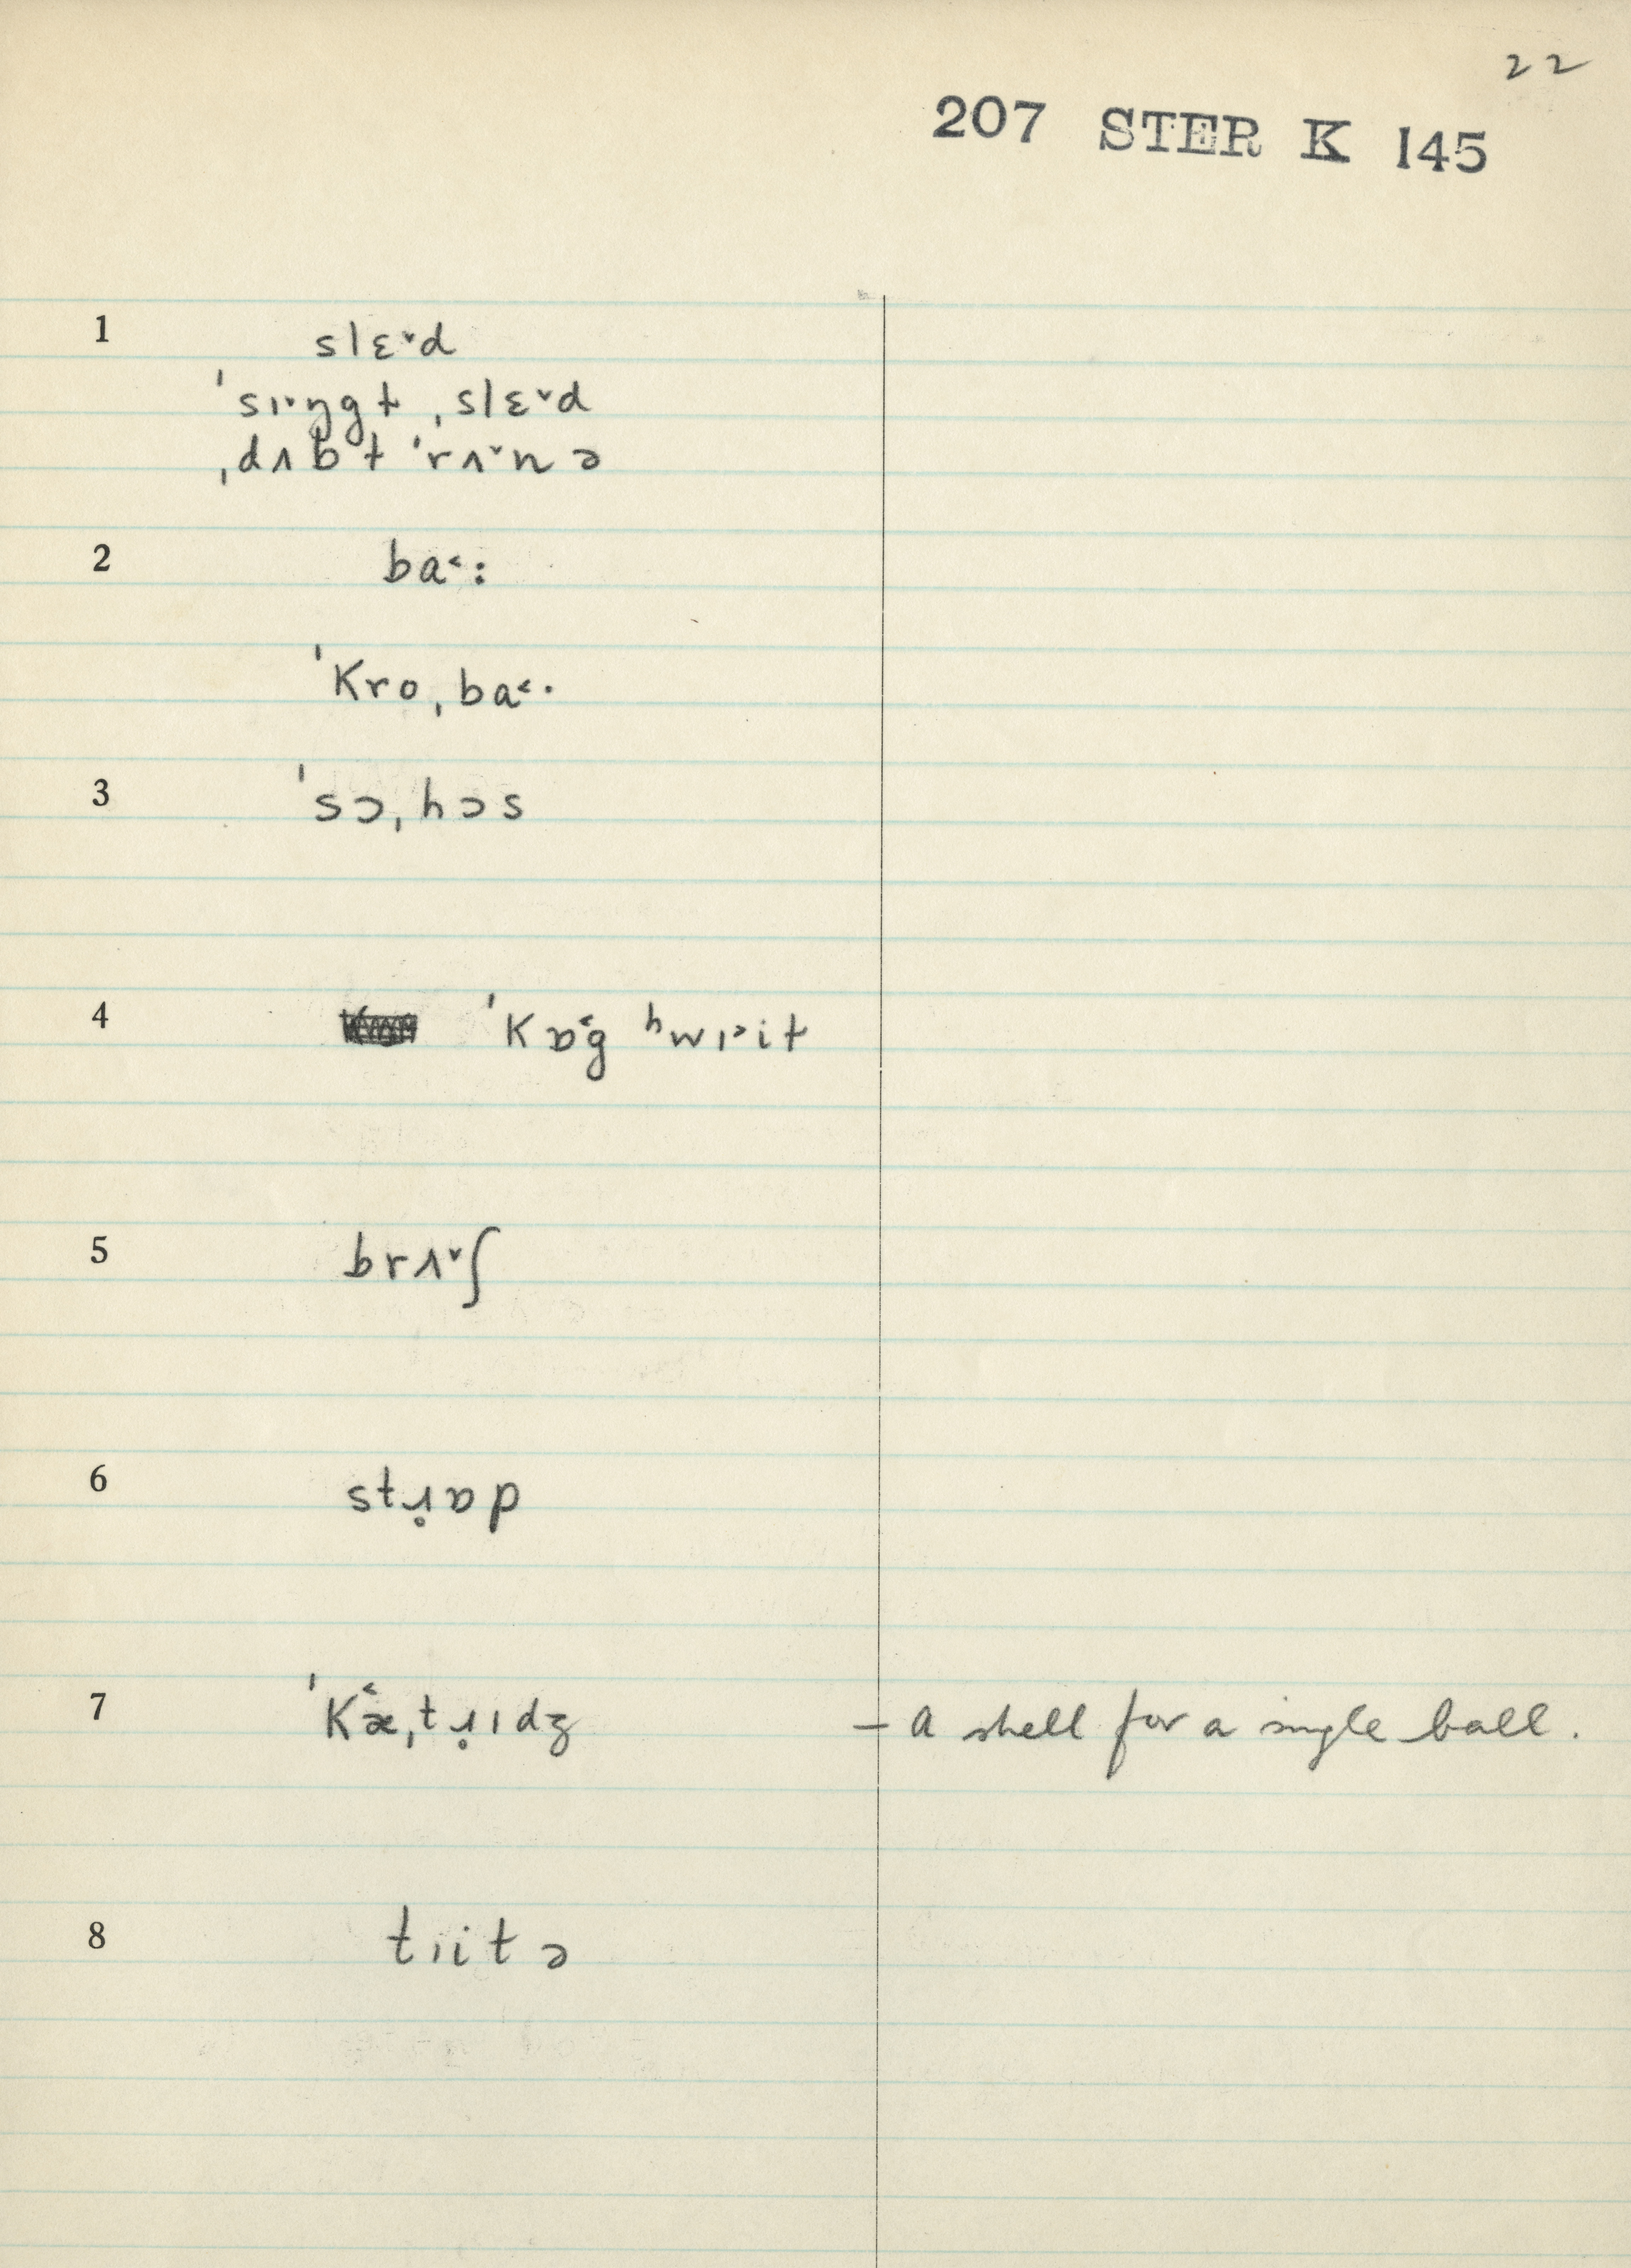 22
207 STER K 145
1 slɛ˅d
ˈsɪ˅ŋgɫ ˌslɛ˅d
ˌdʌbɫ ˈrʌ˅nə
2 ba˂:
ˈkro ˌba˂·
3 ˈsɔˌhɔs
4 ˈkɒ˂g ʰwɪ˃iɫ
5 brʌ˅ʃ
6 stɹ̥ɒp
7 ˈkæ˂ˌtɹ̥ɪdʒ – a shell for a single ball.
8 tɪitə